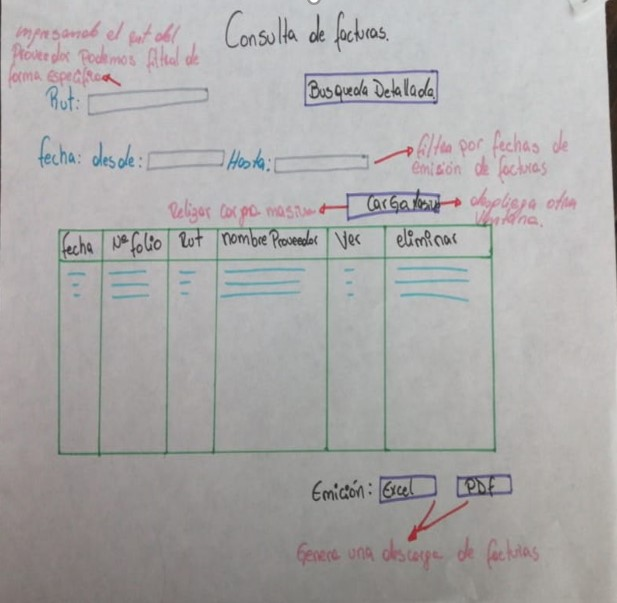 Consulta de facturas.
Impresando el rut del
Proveedor Podemos filtrar de
forma especifica
Rut:
Busqueda Detallada
fecha: desde: Hasta:
filtra por fechas de
emisión de facturas
Relizar carga masiva
Carga Masiva
despliega otra
ventana.
fecha N° folio Rut nombre Proveedor Ver eliminar
Emición: Excel PDF
Genera una descarga de facturas